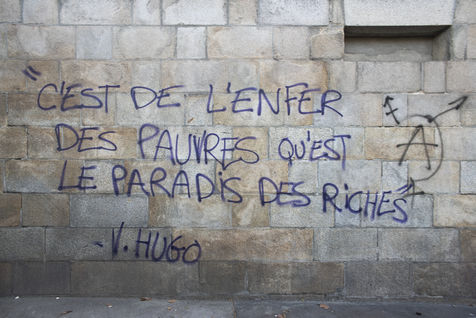 "C'EST DE L'ENFER
DES PAUVRES QU'EST
LE PARADIS DES RICHES"
- V. HUGO
A